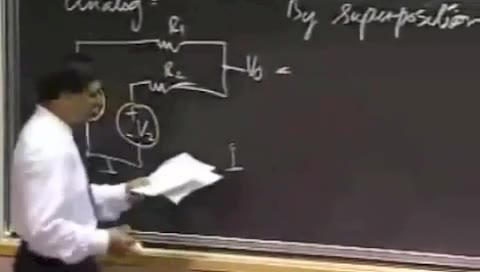 Analog:
By superposition
R1
R2
V0 =
+
V2
-